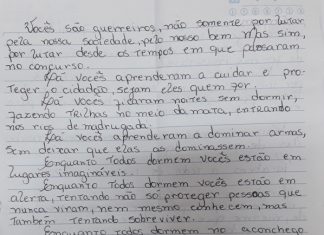 Vocês são guerreiros, não somente por lutar
pela nossa sociedade, pelo nosso bem mas sim,
por lutar desde os tempos em que passaram
no concurso.
Lá vocês aprenderam a cuidar e pro-
teger o cidadão, sejam eles quem for.
Lá vocês ficaram noites sem dormir,
fazendo trilhas no meio da mata, entrando
nos rios de madrugada;
Lá vocês aprenderam a dominar armas,
sem deixar que elas os dominassem.
Enquanto todos dormem vocês estão em
lugares imagináveis.
Enquanto todos dormem vocês estão em
alerta, tentando não só proteger pessoas que
nunca viram, nem mesmo conhecem, mas
também tentando sobreviver.
Enquanto todos dormem no aconchego